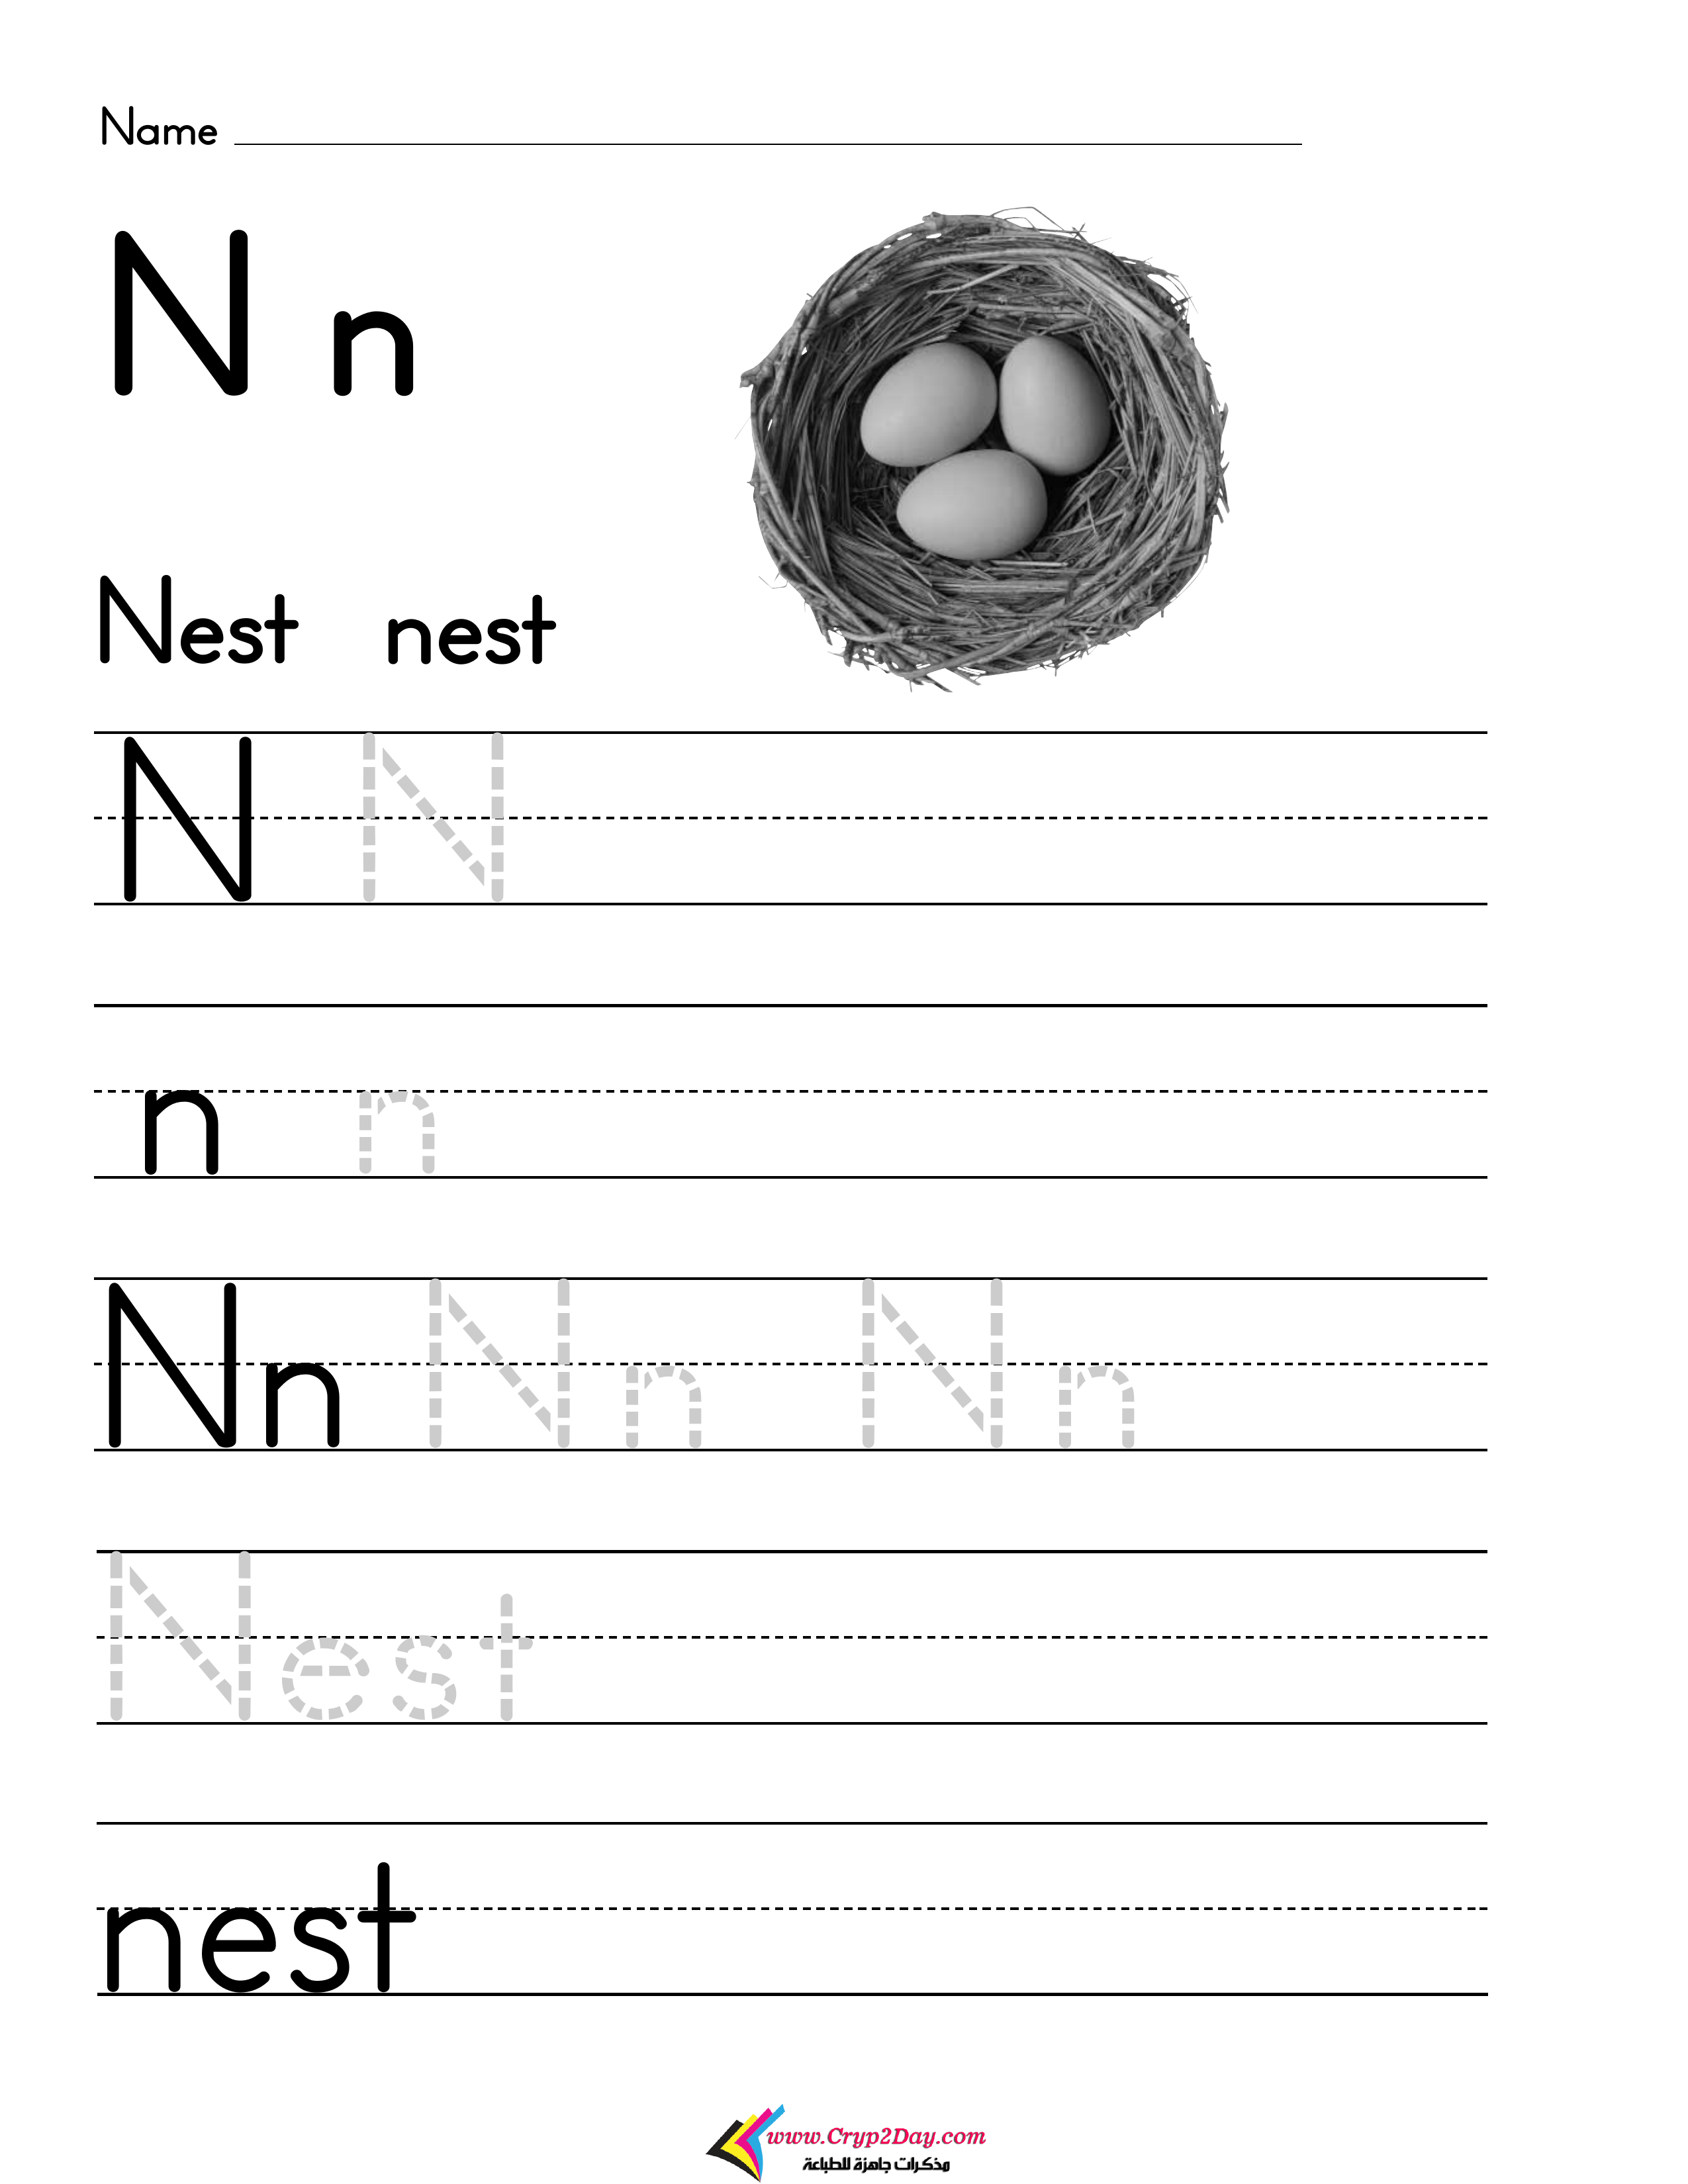 Name
N n
Nest nest
N N
n n
Nn Nn Nn
Nest
nest
www.Cryp2Day.com
مذكرات جاهزة للطباعة